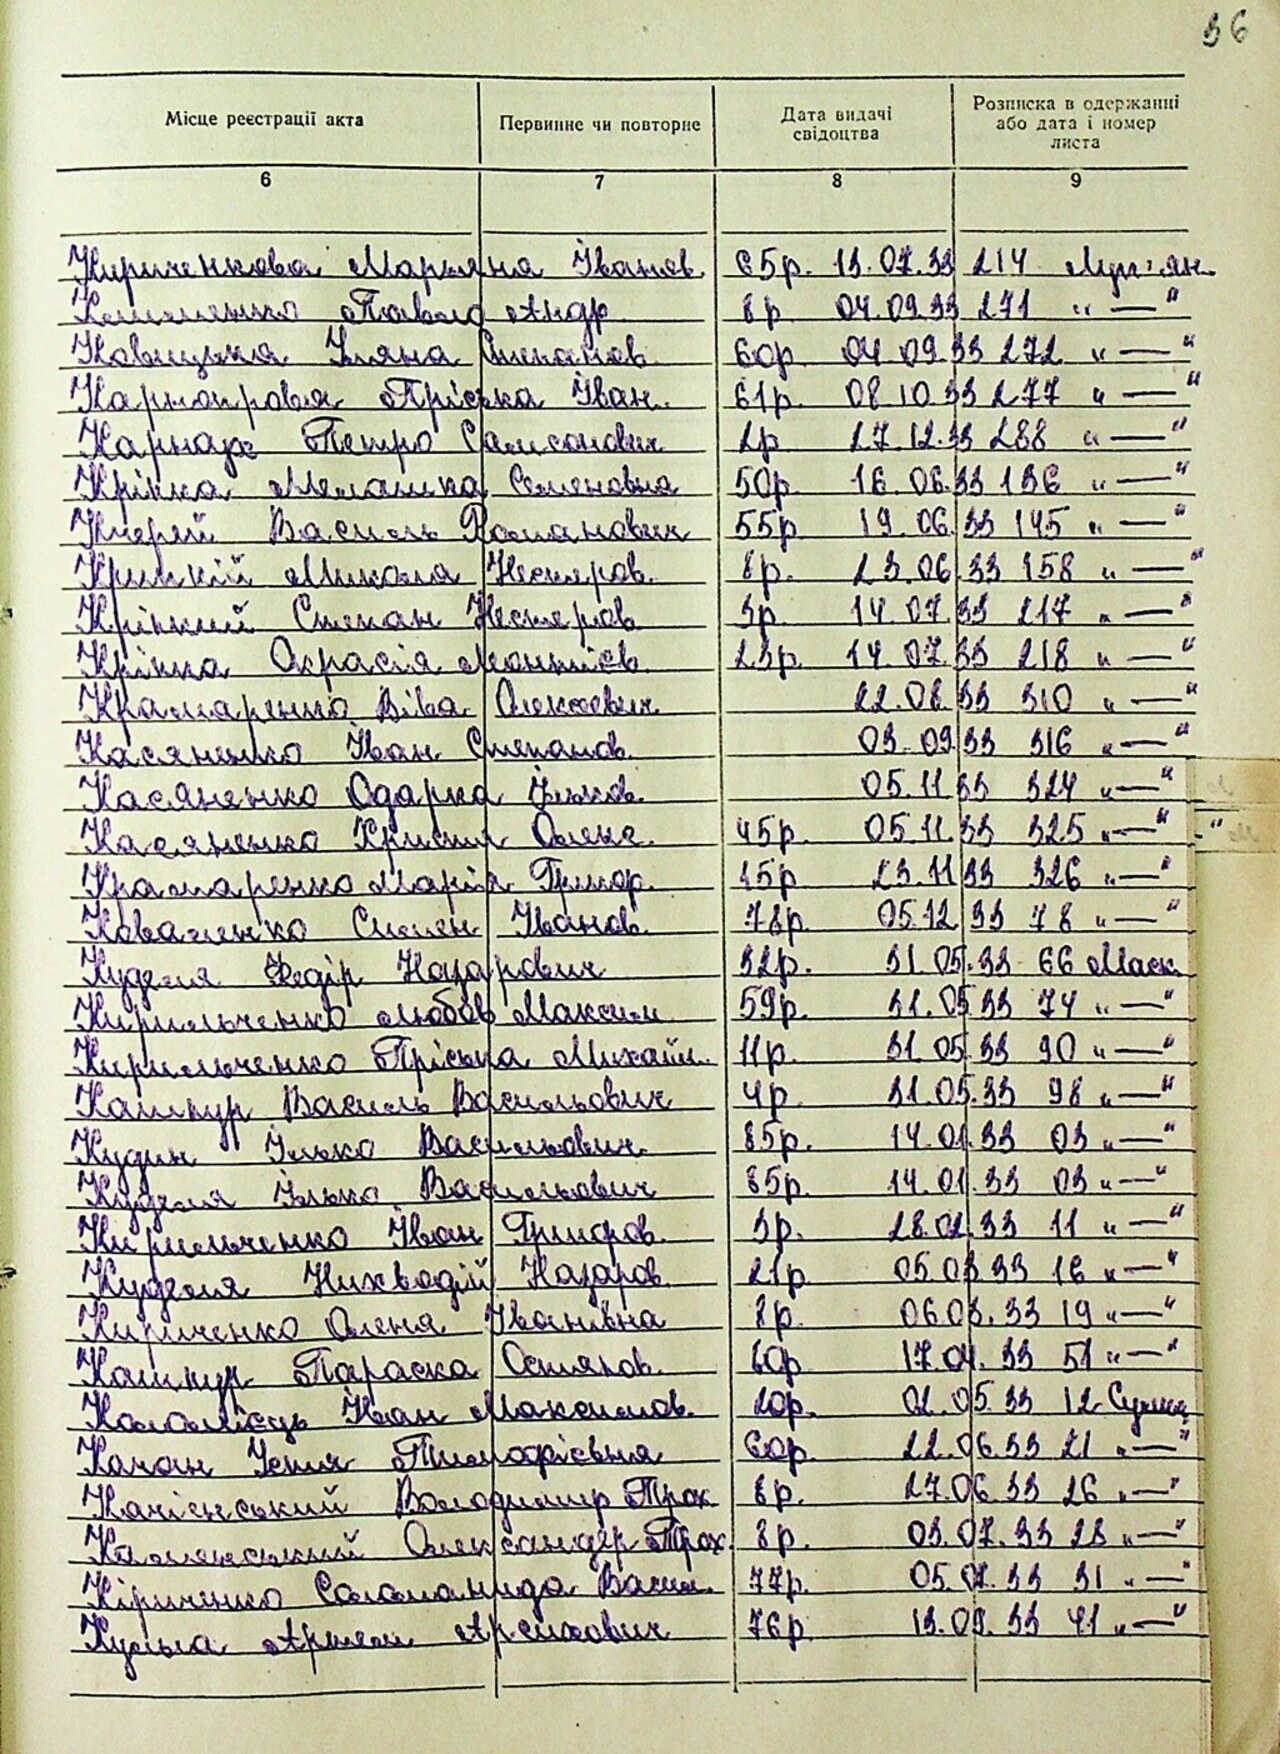 36
Місце реєстрації акта
Первинне чи повторне
Дата видачі свідоцтва
Розписка в одержанні або дата і номер листа
6 7 8 9
Кириченкова Мар'яна Іванов. 65р. 13.07.33 214
Павло Андр 8р 04.09.33 271 "—"
Уляна Степанов. 60р. 04 09.33 272 "—"
Пріська Іван. 61р. 08.10.33 277 "—"
Карнаух Петро Самсонович 2р 27.12.33 288 "—"
Крівка Мелашка Семеновна 50р. 16.06.33 136 "—"
Василь Романович 55р. 19.06.33 145 "—"
Микола Нестеров. 8р. 23.06.33 158 "—"
Степан Нестеров. 3р. 14.07.33 217 "—"
Крівка 23р. 14.07.33 218 "—"
Крамаренко Віва Олексеевич 22.08.33 310 "—"
Касяненко Іван Степанов. 03.09.33 316 "—"
Касяненко Одарка Ільков. 05.11.33 324 "—"
Касяненко Христя Олекс. 45р. 05.11.33 325 "—"
Крамаренко Марія Григор. 15р 23.11.33 326 "—"
Коваленко Семен Іванов. 78р. 05.12.33 78 "—"
Куделя Федір Назарович 32р. 31.05.33 66 Маск.
Кирильченко Любов Максим 59р. 31.05.33 74 "—"
Кирильченко Пріська Михайл. 11р. 31.05.33 90 "—"
Кашпур Василь Васильович 4р. 31.05.33 98 "—"
Кудин Ілько Васильович. 85р. 14.01.33 03 "—"
Куделя Ілько Васильович 85р. 14.01.33 03 "—"
Кирильченко Іван Григоров. 3р. 28.02.33 11 "—"
Куделя Назаров. 21р. 05.03.33 16 "—"
Кириченко Олена Іванівна 8р. 06.03.33 19 "—"
Кашпур Параска Остапов. 60р 17.04.33 51 "—"
Коломієць Іван Максимов. 20р. 02.05.33 12
Качан Устя Тимофієвна 60р. 22.06.33 21 "—"
Володимир Трох 8р. 27.06.33 26 "—"
Олександер Трох. 8р. 03.07.33 28 "—"
Кіриченко Соломанида Васил. 77р. 05.07.33 31 "—"
Кулька Артем Архипович 76р. 13.09.33 41 "—"